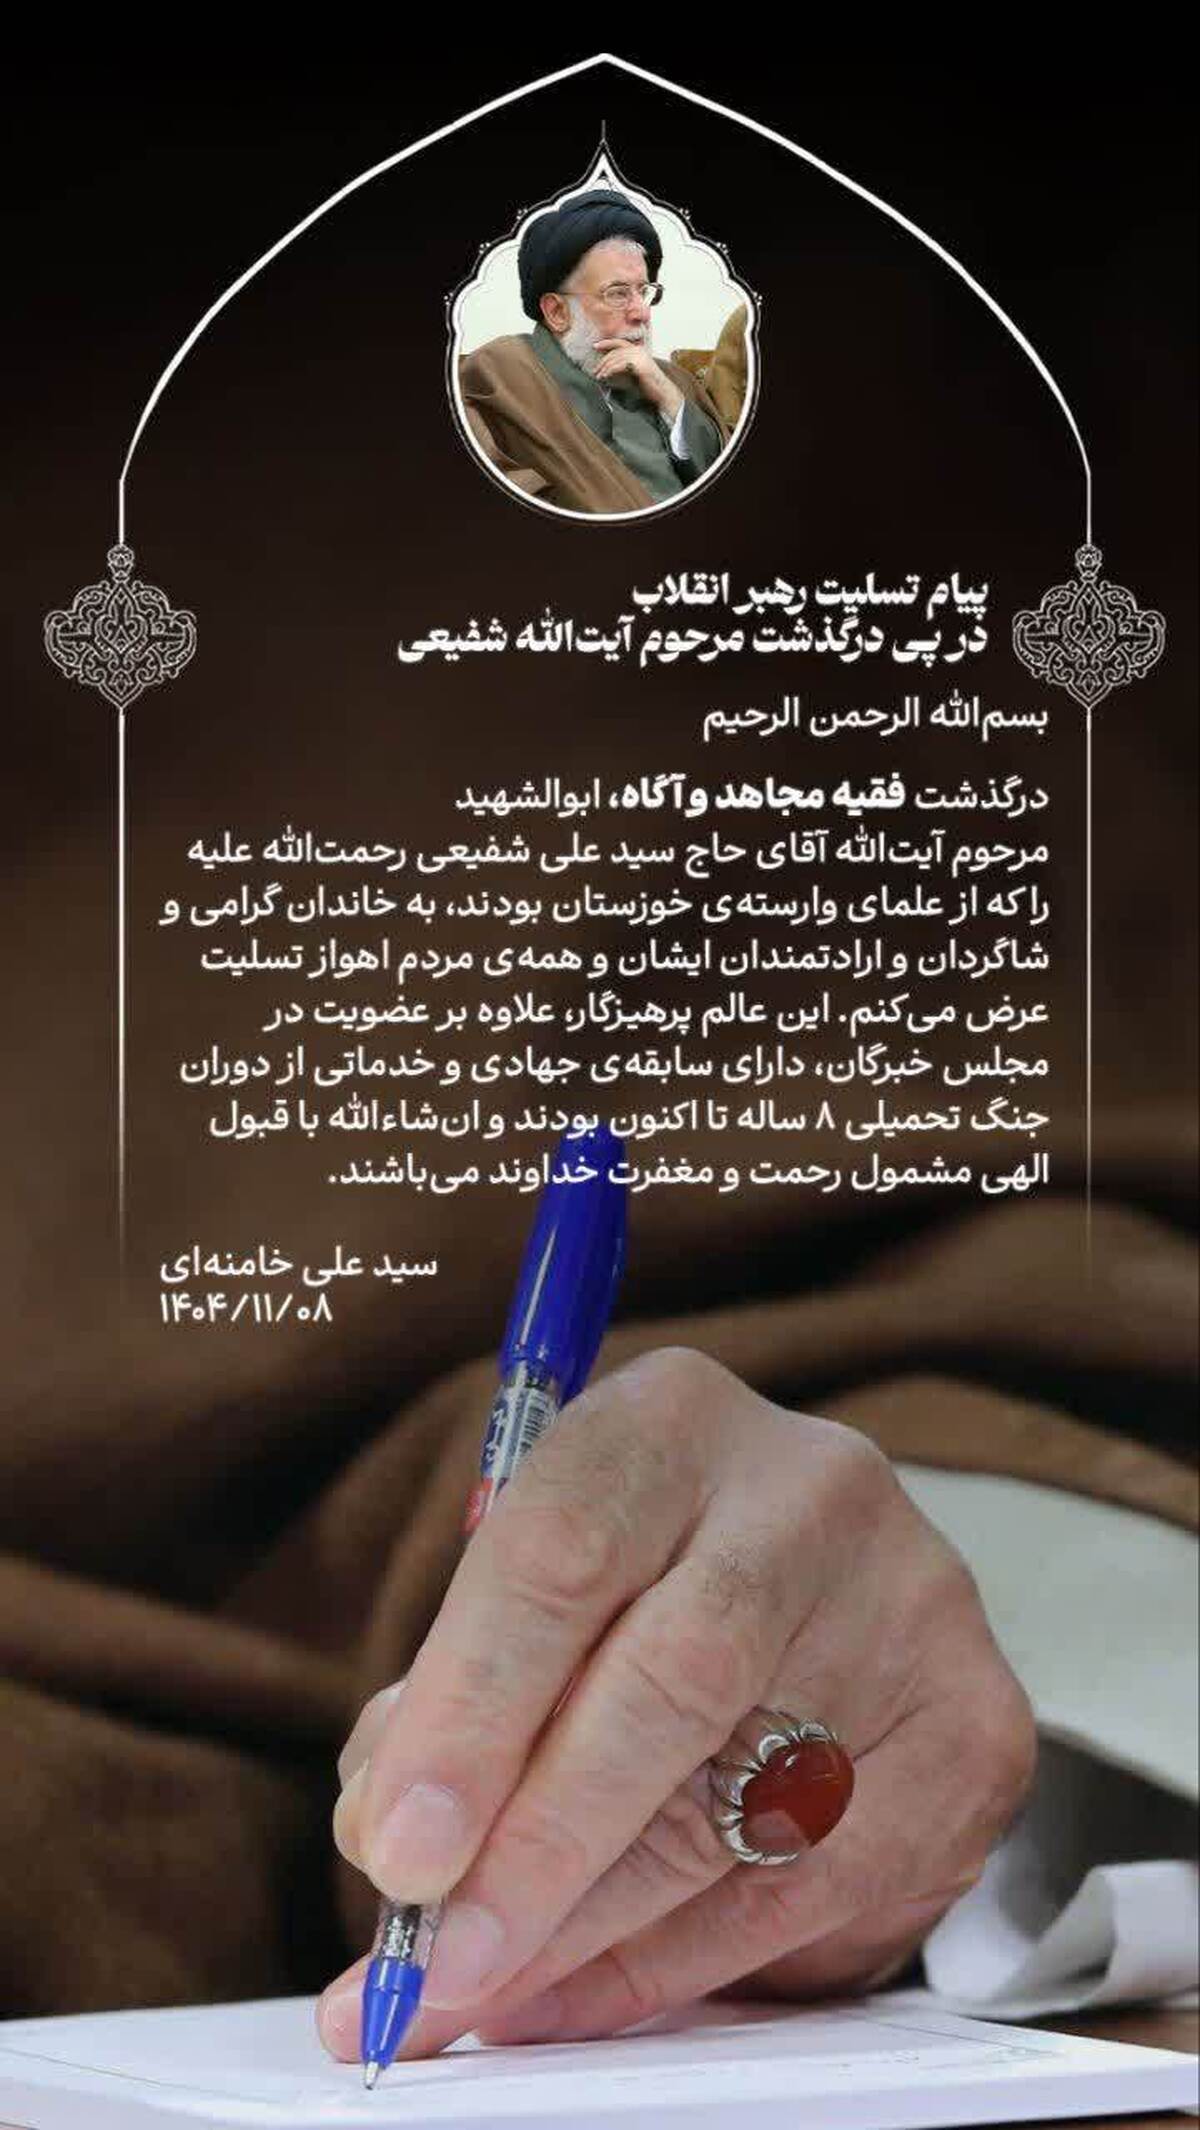 پیام تسلیت رهبر انقلاب
در پی درگذشت مرحوم آیت‌الله شفیعی
بسم‌الله الرحمن الرحیم
درگذشت فقیه مجاهد و آگاه، ابوالشهید
مرحوم آیت‌الله آقای حاج سید علی شفیعی رحمت‌الله علیه
را که از علمای وارسته‌ی خوزستان بودند، به خاندان گرامی و
شاگردان و ارادتمندان ایشان و همه‌ی مردم اهواز تسلیت
عرض می‌کنم. این عالم پرهیزگار، علاوه بر عضویت در
مجلس خبرگان، دارای سابقه‌ی جهادی و خدماتی از دوران
جنگ تحمیلی ۸ ساله تا اکنون بودند و ان‌شاءالله با قبول
الهی مشمول رحمت و مغفرت خداوند می‌باشند.
سید علی خامنه‌ای
۱۴۰۴/۱۱/۰۸